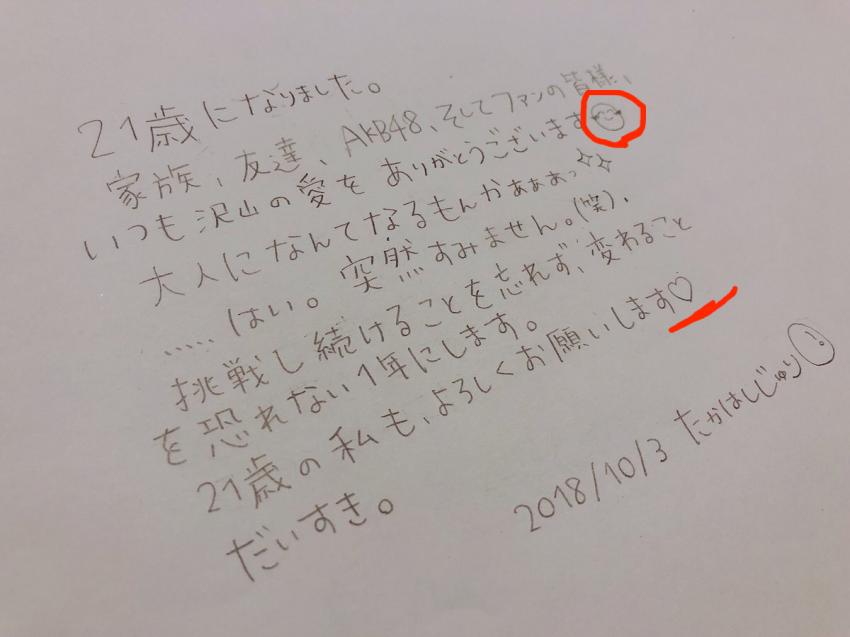 21歳になりました。
家族、友達、AKB48、そしてファンの皆様、
いつも沢山の愛をありがとうございます
大人になんてなるもんかぁぁぁっ✧✧
.....はい。突然すみません。(笑)、
挑戦し続けることを忘れず、変わること
を恐れない1年にします。
21歳の私も、よろしくお願いします♡
だいすき。
2018/10/3 たかはしじゅり